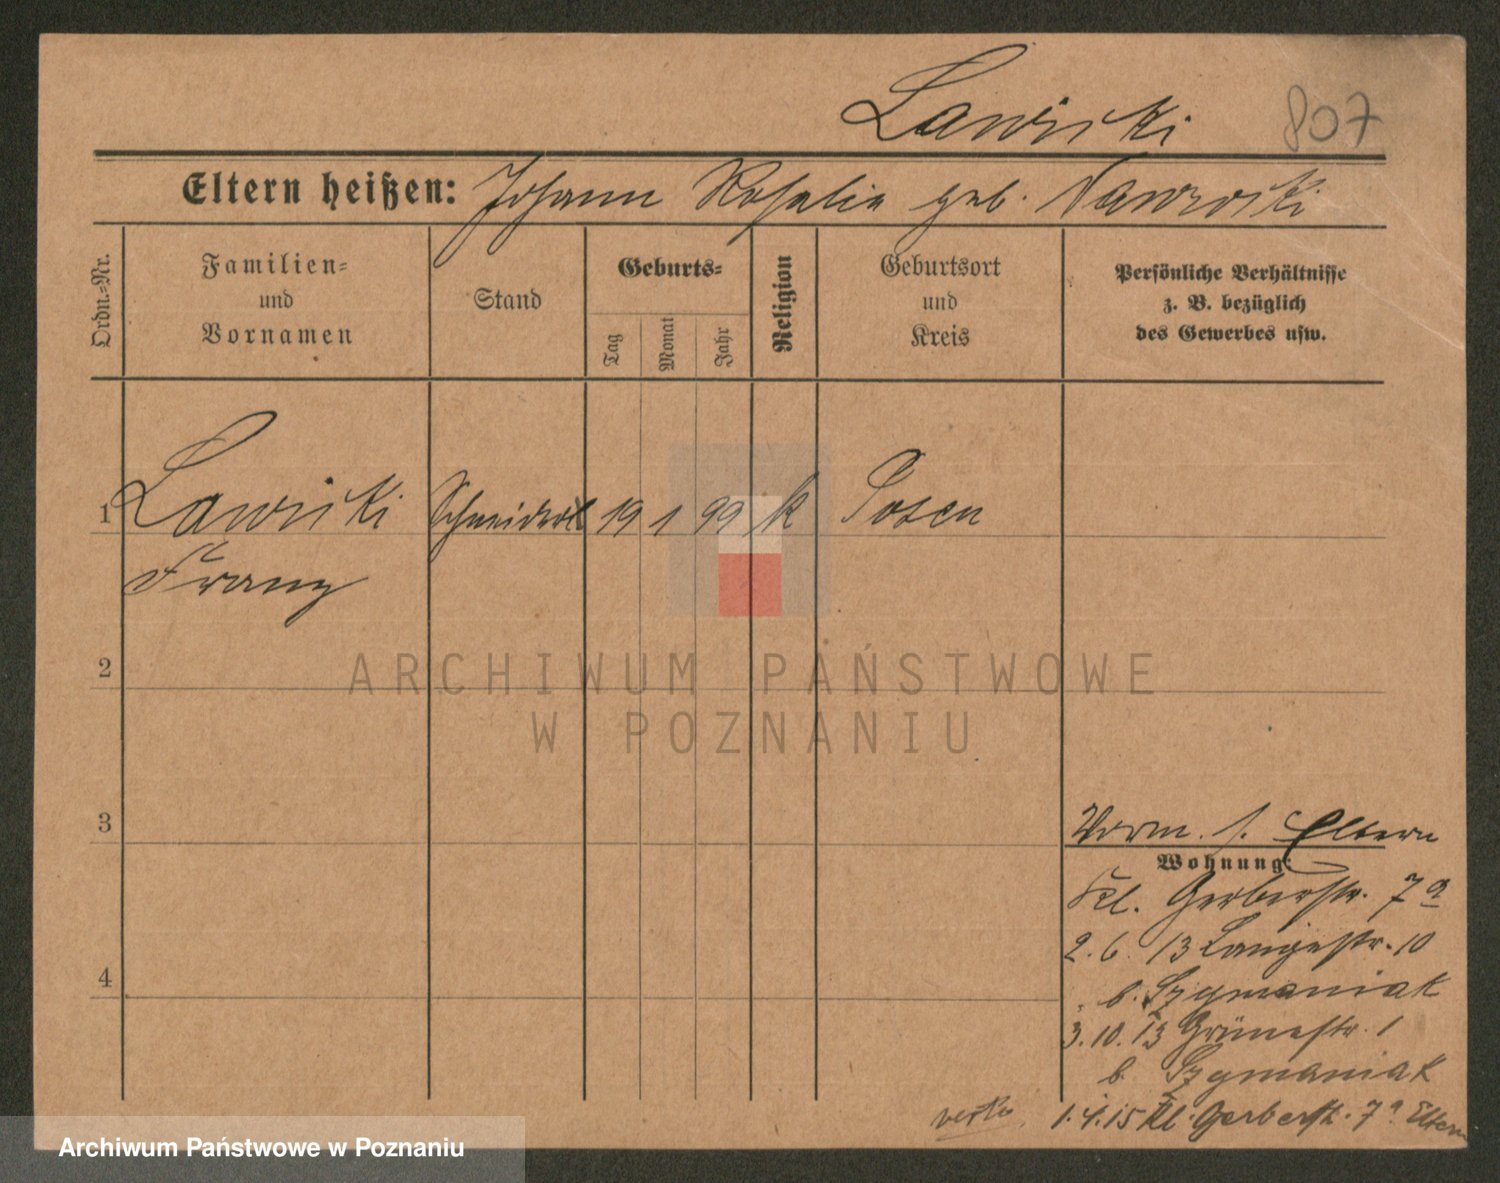 Lawicki 807
Eltern heißen: Johann Rosalie geb. Nawrocki
Ordn.-Nr.
Familien-
und
Vornamen
Stand
Geburts-
Tag
Monat
Jahr
Religion
Geburtsort
und
Kreis
Persönliche Verhältnisse
z. B. bezüglich
des Gewerbes usw.
1 Lawicki Schneiderl 19 1 99 k Posen
Franz
2
3
4
Vorm. s. Eltern
Wohnung:
Kl. Gerberstr. 7a
2.6.13 Langestr. 10
b. Szymaniak
3.10.13 Grünestr. 1
b. Szymaniak
1.4.15 Kl. Gerberstr. 7a Eltern
verte
ARCHIWUM PAŃSTWOWE
W POZNANIU
Archiwum Państwowe w Poznaniu